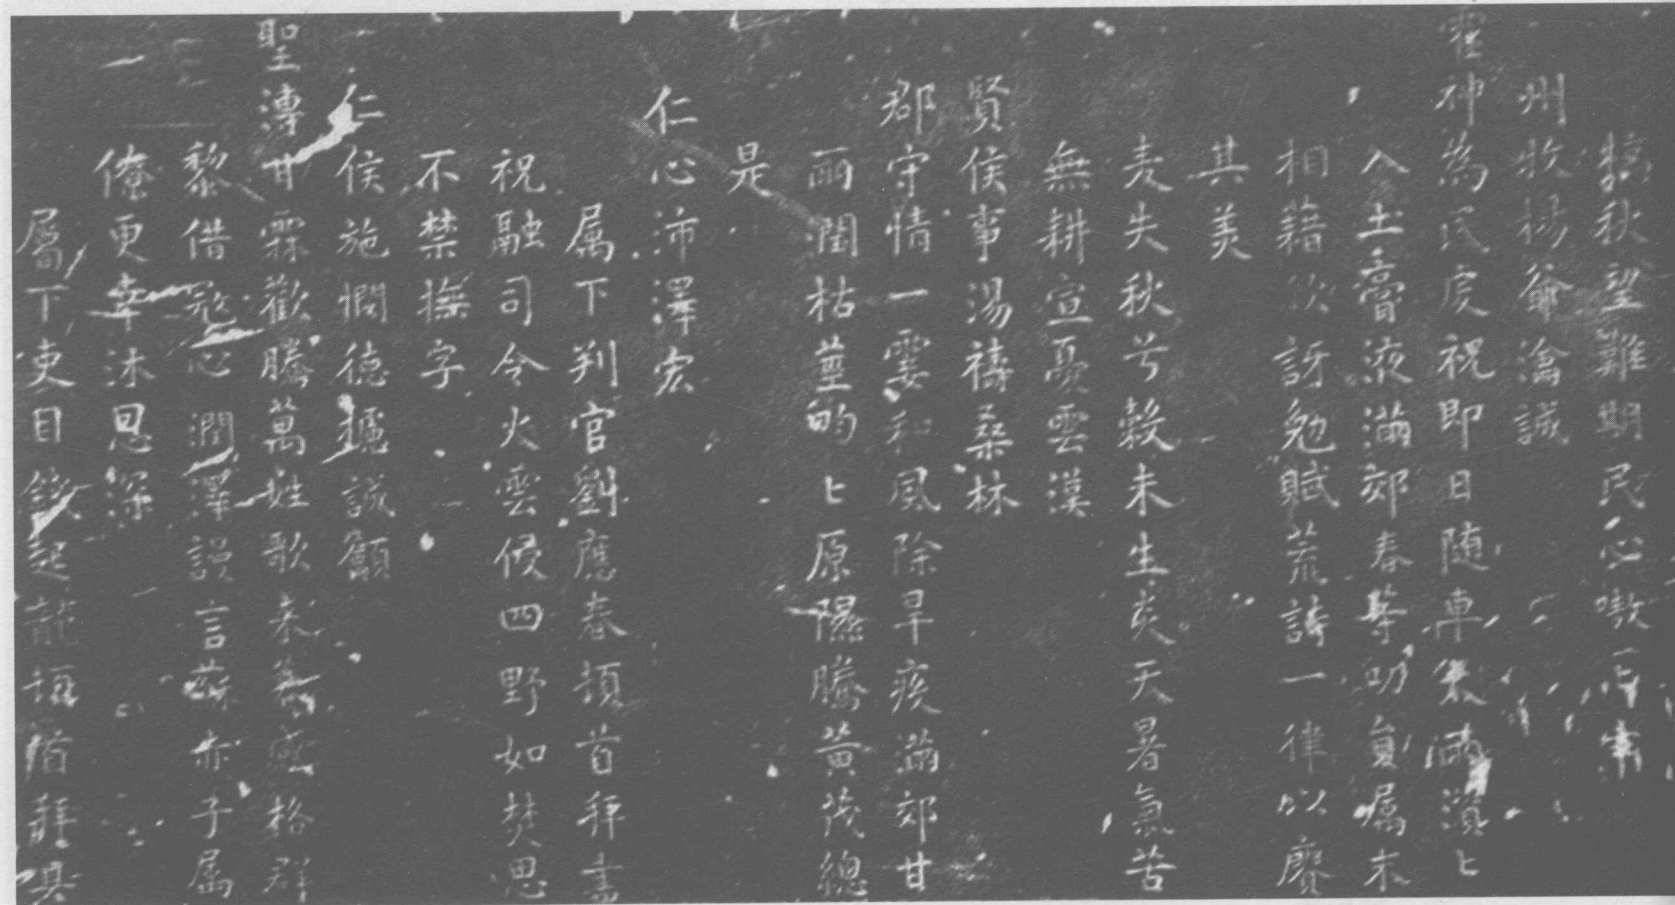 秋望難期民心嗷
州牧楊爺瀹誠
神為民虔祝即日随車
入土膏液滿郊春等叨負属末
相藉欣訝勉賦荒詩一律以賡
其美
麦失秋兮穀未生炎天暑氣苦
無耕宣憂雲漢
賢侯事湯禱桑林
郡守情一霎和風除旱疾滿郊甘
雨潤枯莖畇匕原隰騰黃茂總
是
仁心沛澤宏
属下判官劉應春頓首拜書
祝融司令火雲侵四野如焚思
不禁撫字
仁侯施惆德攄誠籲
聖溥甘霖歡騰萬姓歌来感格群
黎借冦心潤澤謾言蘇赤子属
僚更幸沐恩深
属下吏目起龍頓首拜具